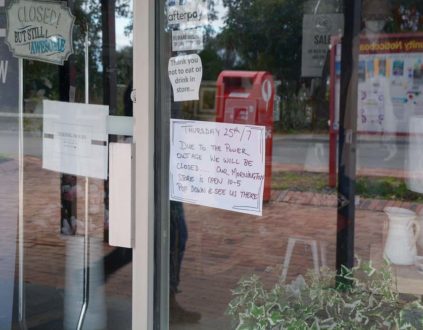 CLOSED!
BUT STILL
AWESOME
afterpay
Thank you
not to eat or
drink in
store...
SALE
THURSDAY 25th/7
DUE TO THE POWER
OUTAGE WE WILL BE
CLOSED..... OUR MORNINGTON
STORE IS OPEN 10-5
POP DOWN & SEE US THERE